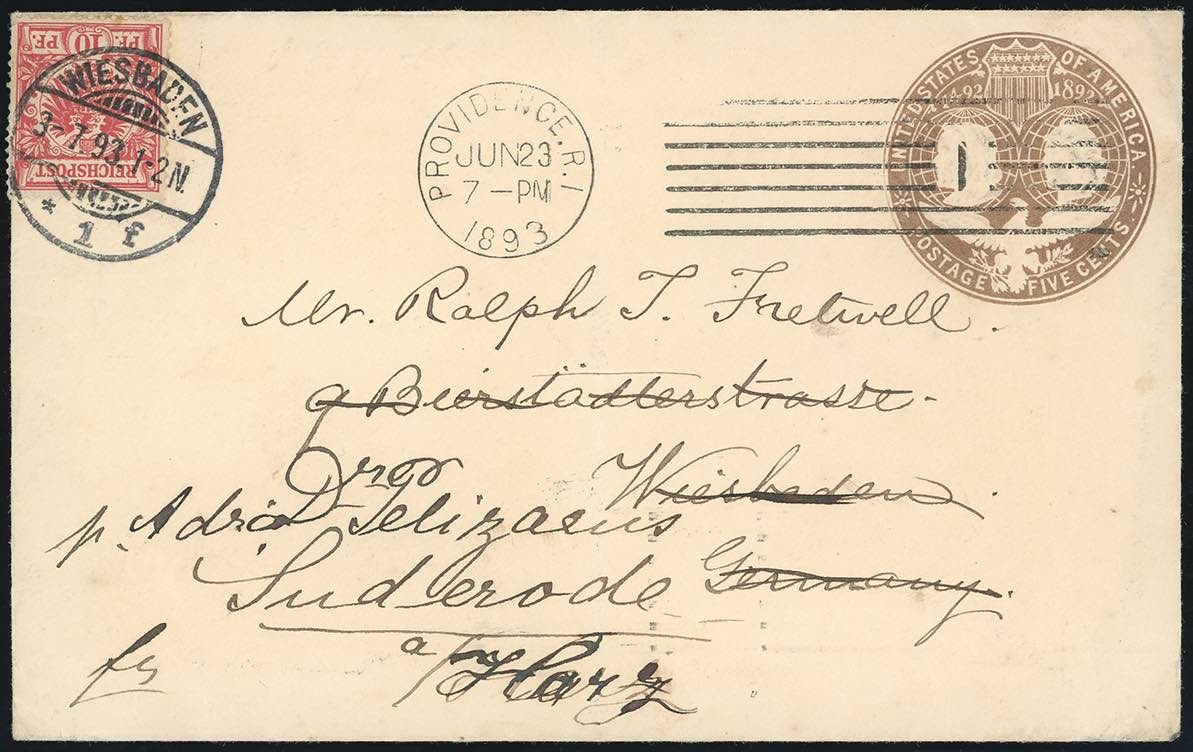 10
PF. 10 PF.
REICHSPOST
WIESBADEN
3-7.93.1-2N.
* 1 f
PROVIDENCE. R.I
JUN 23
7-PM
1893
UNITED STATES OF AMERICA
1492 1892
POSTAGE FIVE CENTS
Mr. Ralph T. Fretwell.
9 Bierstädterstrasse-
Wiesbaden.
Germany.
p. Adr. Dr
Pelizaeus
Suderode
a/Harz